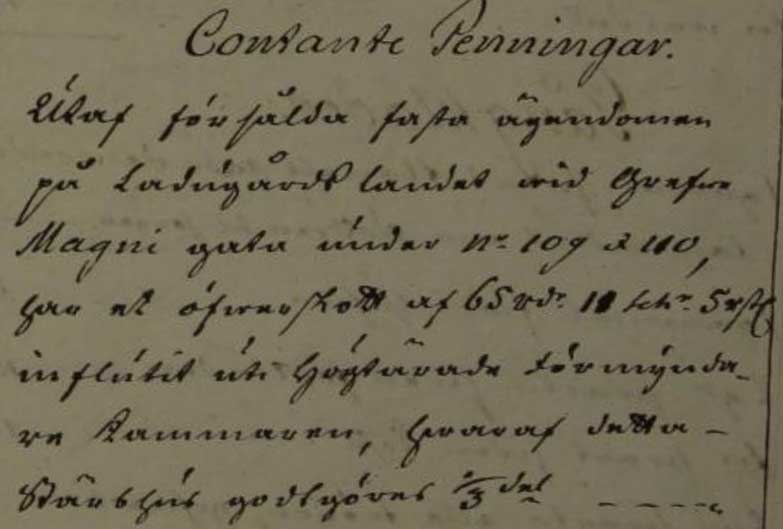 Contante Penningar.
Utaf försålda fasta ägendomen
på Ladugårds landet wid Grefwe
Magni gata under No 109 & 110,
har et öfwerskott af 65 rdr 11 sch: 5 rst
influtit uti Högtärade Förmynda-
re Kammaren, hwaraf detta -
Stärbhus godtgöres 2/3 del - - - - -